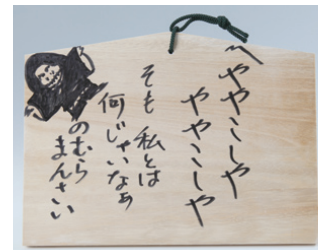 〽ややこしや
ややこしや
そも 私とは
何じゃいなぁ
のむら
まんさい